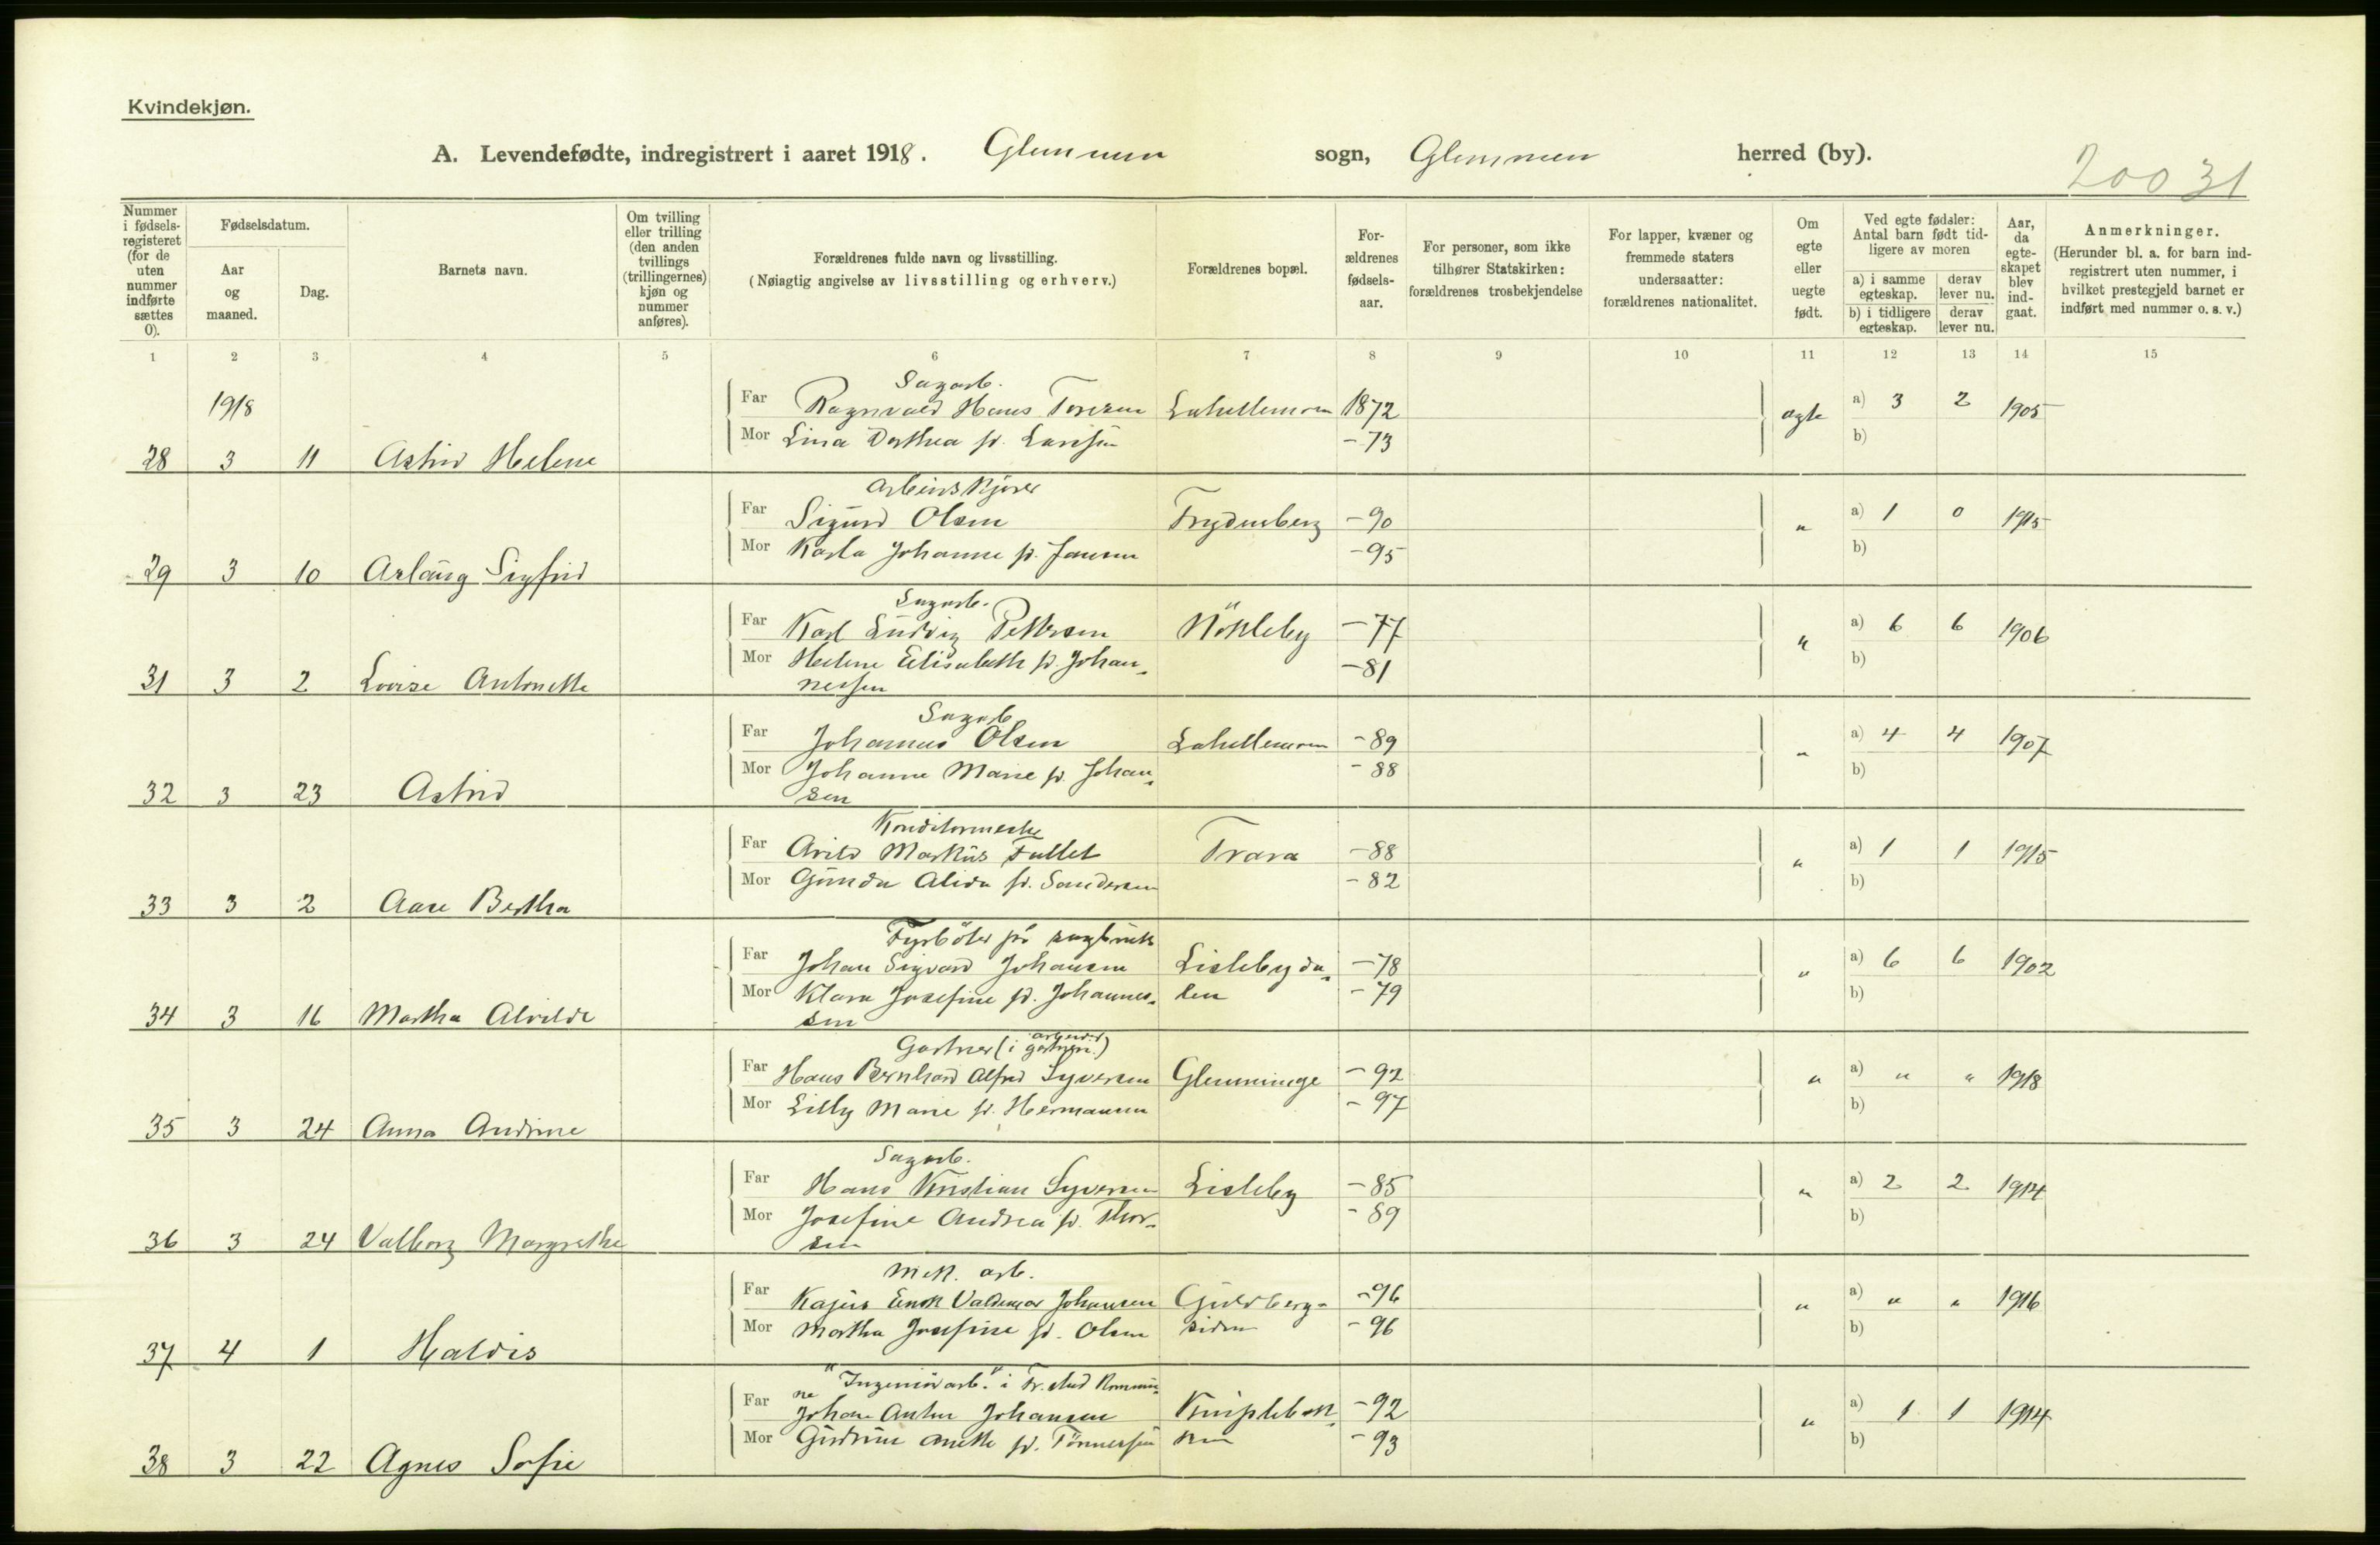 Kvindekjøn.
A. Levendefødte, indregistrert i aaret 1918. Glemmen sogn, Glemmen herred (by).
20031
Nummer i fødselsregisteret (for de uten nummer indførte sættes 0).
Fødselsdatum.
Aar og maaned.
Dag.
Barnets navn.
Om tvilling eller trilling (den anden tvillings (trillingernes) kjøn og nummer anføres).
Forældrenes fulde navn og livsstilling.
(Nøiagtig angivelse av livsstilling og erhverv.)
Forældrenes bopæl.
Forældrenes fødselsaar.
For personer, som ikke tilhører Statskirken: forældrenes trosbekjendelse
For lapper, kvæner og fremmede staters undersaatter: forældrenes nationalitet.
Om egte eller uegte født.
Ved egte fødsler: Antal barn født tidligere av moren
a) i samme egteskap.
derav lever nu.
b) i tidligere egteskap.
derav lever nu.
Aar, da egteskapet blev indgaat.
Anmerkninger.
(Herunder bl. a. for barn indregistrert uten nummer, i hvilket prestegjeld barnet er indført med nummer o. s. v.)
1 2 3 4 5 6 7 8 9 10 11 12 13 14 15
1918
Sagarb.
Far Ragnvald Hans Toresen Lahellemoen 1872 egte a) 3 2 1905
Mor Lina Dorthea f. Larsen - 73 b)
28 3 11 Astrid Helene
Arbeidskjører
Far Sigurd Olsen Frydenberg - 90 " a) 1 0 1915
Mor Karla Johanne f. Jansen - 95 b)
29 3 10 Aslaug Sigfrid
Sagarb.
Far Karl Ludvig Pettersen Nökleby - 77 " a) 6 6 1906
Mor Helene Elisabeth f. Johan- - 81 b)
nessen
31 3 2 Lovise Antonette
Sagarb
Far Johannes Olsen Lahellemoen - 89 " a) 4 4 1907
Mor Johanne Marie f. Johan- - 88 b)
sen
32 3 23 Astrid
Konditormester
Far Arild Markus Trara - 88 " a) 1 1 1915
Mor Gunda Alida f. Sandersen - 82 b)
33 3 2 Aase Bertha
Fyrböter på sagbruk
Far Johan Sigvard Johansen Lislebyda- - 78 " a) 6 6 1902
Mor Klara Josefine f. Johannes- len - 79 b)
sen
34 3 16 Martha Alvilde
Gartner (i gartneri.)
Far Hans Bernhard Alfred Syversen Glemminge - 92 " a) " " 1918
Mor Lilly Marie f. Hermansen - 97 b)
35 3 24 Anna Andrine
Sagarb.
Far Hans Kristian Syversen Lisleby - 85 " a) 2 2 1914
Mor Josefine Andrea f. Thor- - 89 b)
sen
36 3 24 Valborg Margrethe
Mek. arb.
Far Kajus Enok Valdemar Johansen Guldberg- - 96 " a) " " 1916
Mor Martha Josefine f. Olsen siden - 96 b)
37 4 1 Haldis
"Ingeniörarb." i Fr.stad Kommu-
ne
Far Johan Anton Johansen - 92 " a) 1 1 1914
Mor Gudrun Anette f. Tönnessen - 93 b)
38 3 22 Agnes Sofie